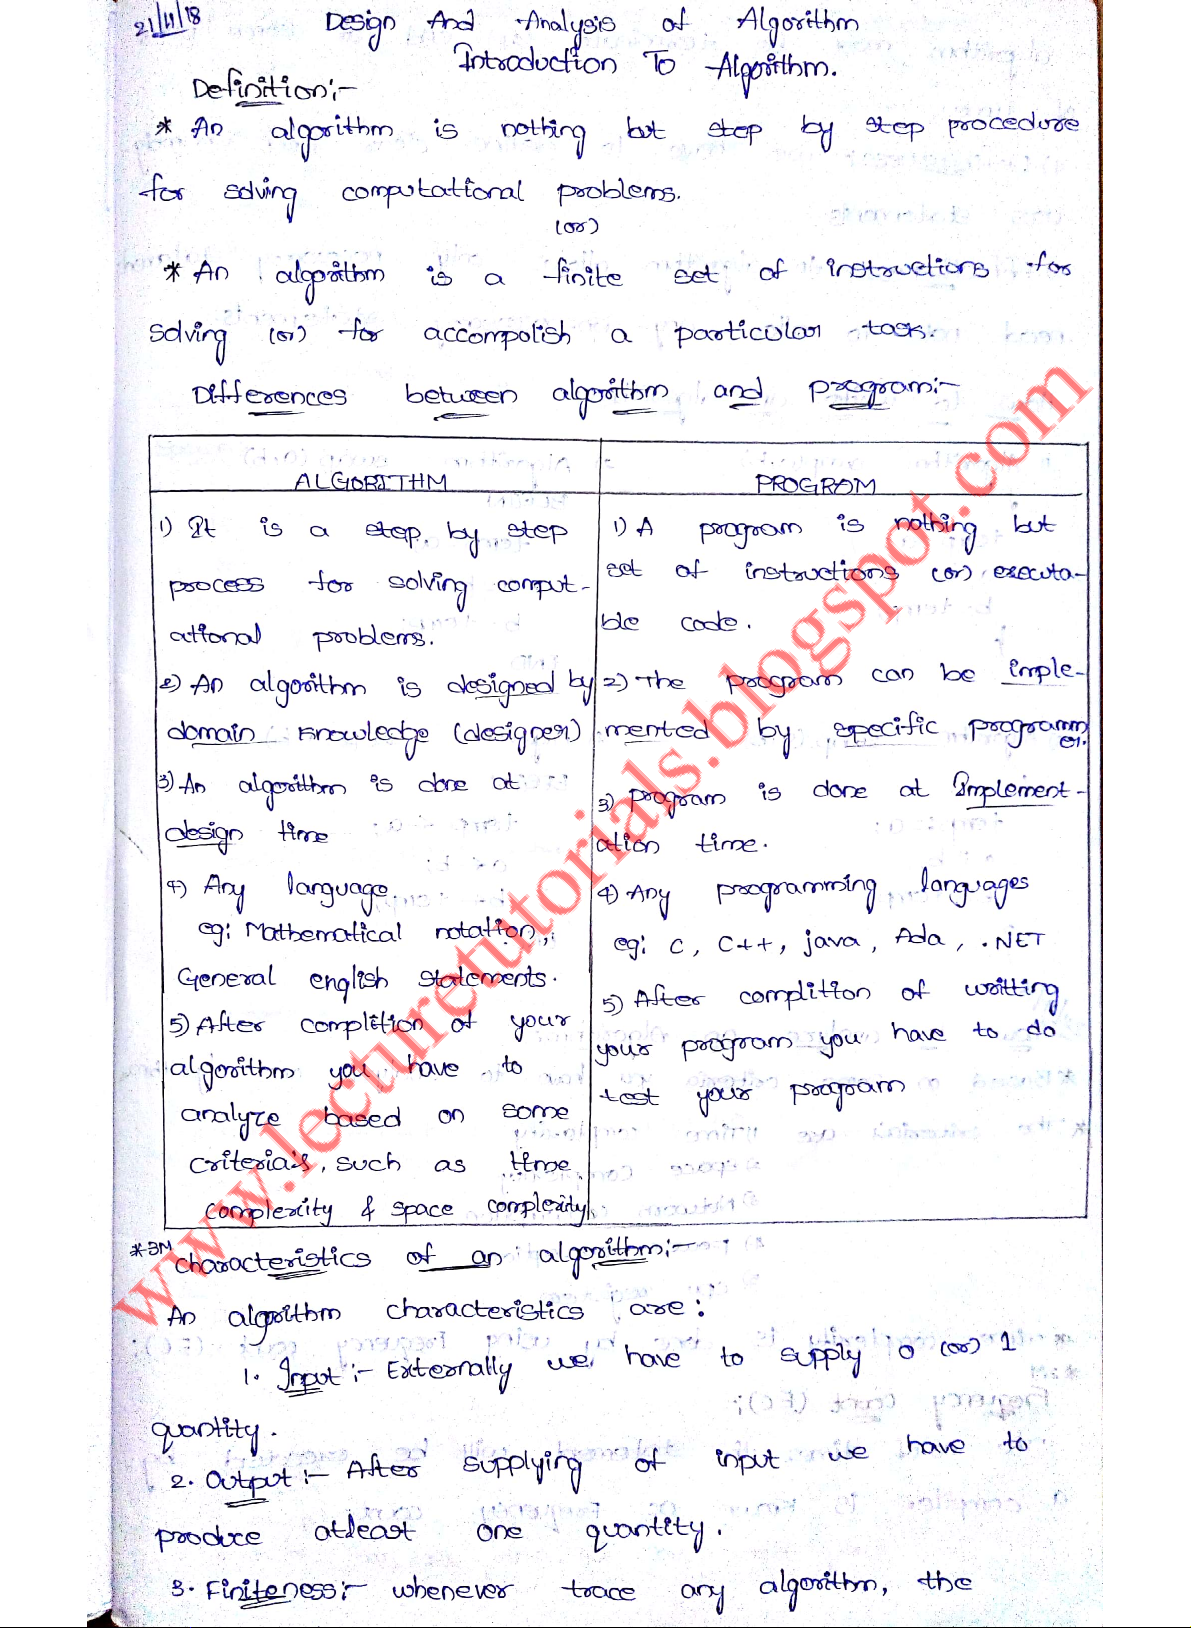 21/11/18
Design And Analysis of Algorithm
Introduction To Algorithm.
Definition:-
* An algorithm is nothing but step by step procedure
for solving computational problems.
(or)
* An algorithm is a finite set of instructions for
solving (or) for accompolish a particular task.
Differences between algorithm and program:-
ALGORITHM
1) It is a step by step
process for solving comput-
ational problems.
2) An algorithm is designed by
domain knowledge (designer)
3) An algorithm is done at
design time
4) Any language.
eg: Mathematical notation,
General english statements.
5) After complition of your
algorithm you have to
analyze based on some
criteria's, such as time
complexity & space complexity
PROGRAM
1) A program is nothing but
set of instructions (or) executa-
ble code.
2) The program can be imple-
mented by specific programm
er.
3) program is done at Implement-
ation time.
4) Any programming languages
eg: C, C++, java, Ada, .NET
5) After complition of writting
your program you have to do
test your program
*3M
characteristics of an algorithm:-
An algorithm characteristics are:
1. Input :- Externally we have to supply 0 (or) 1
quantity.
2. Output :- After supplying of input we have to
produce atleast one quantity.
3. Finiteness:- whenever trace any algorithm, the
www.lecturetutorials.blogspot.com